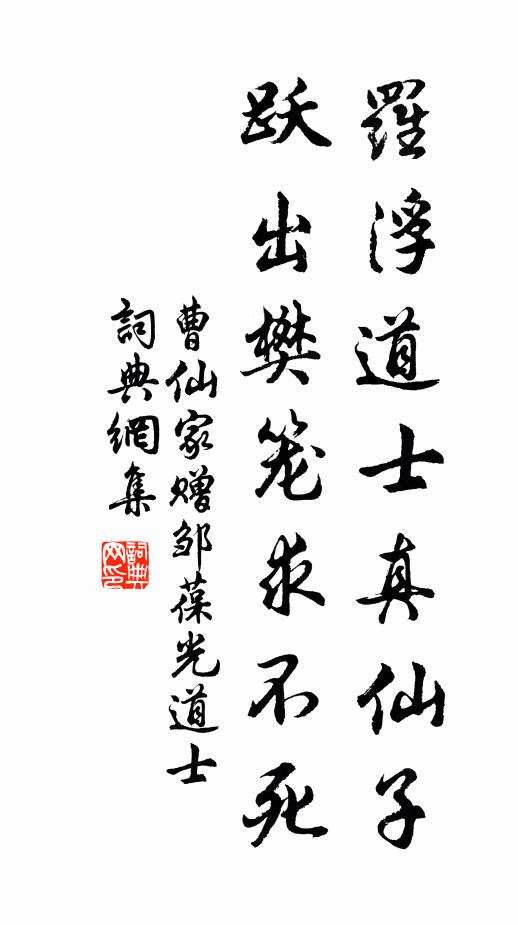 羅浮道士真仙子
跃出樊笼求不死
曹仙家赠邹葆光道士
詞典網集
詞典网印